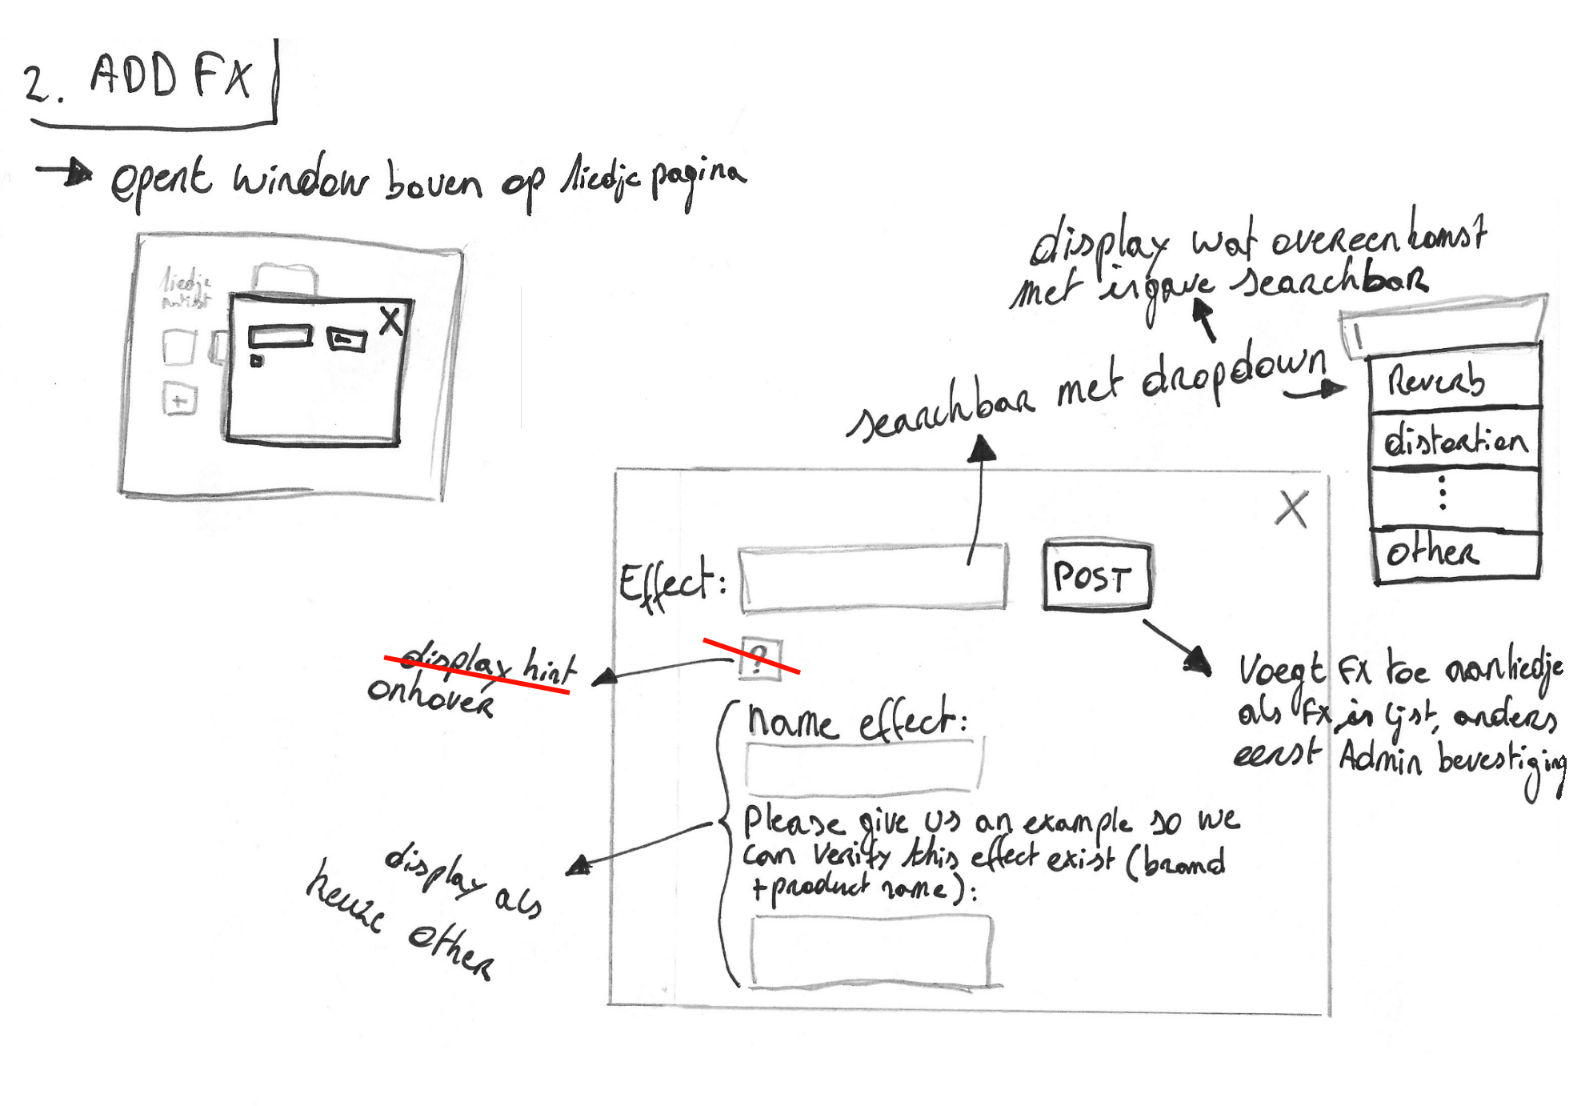 2. ADD FX
opent window boven op liedje pagina
liedje
artist
X
+
display wat overeenkomst
met ingave searchbar
searchbar met dropdown
Reverb
distortion
⋮
Other
X
Effect:
POST
?
display hint
onhover
Voegt FX toe aan liedje
als FX in lijst, anders
eerst Admin bevestiging
name effect:
Please give us an example so we
can verify this effect exist (brand
+product name):
display als
keuze Other